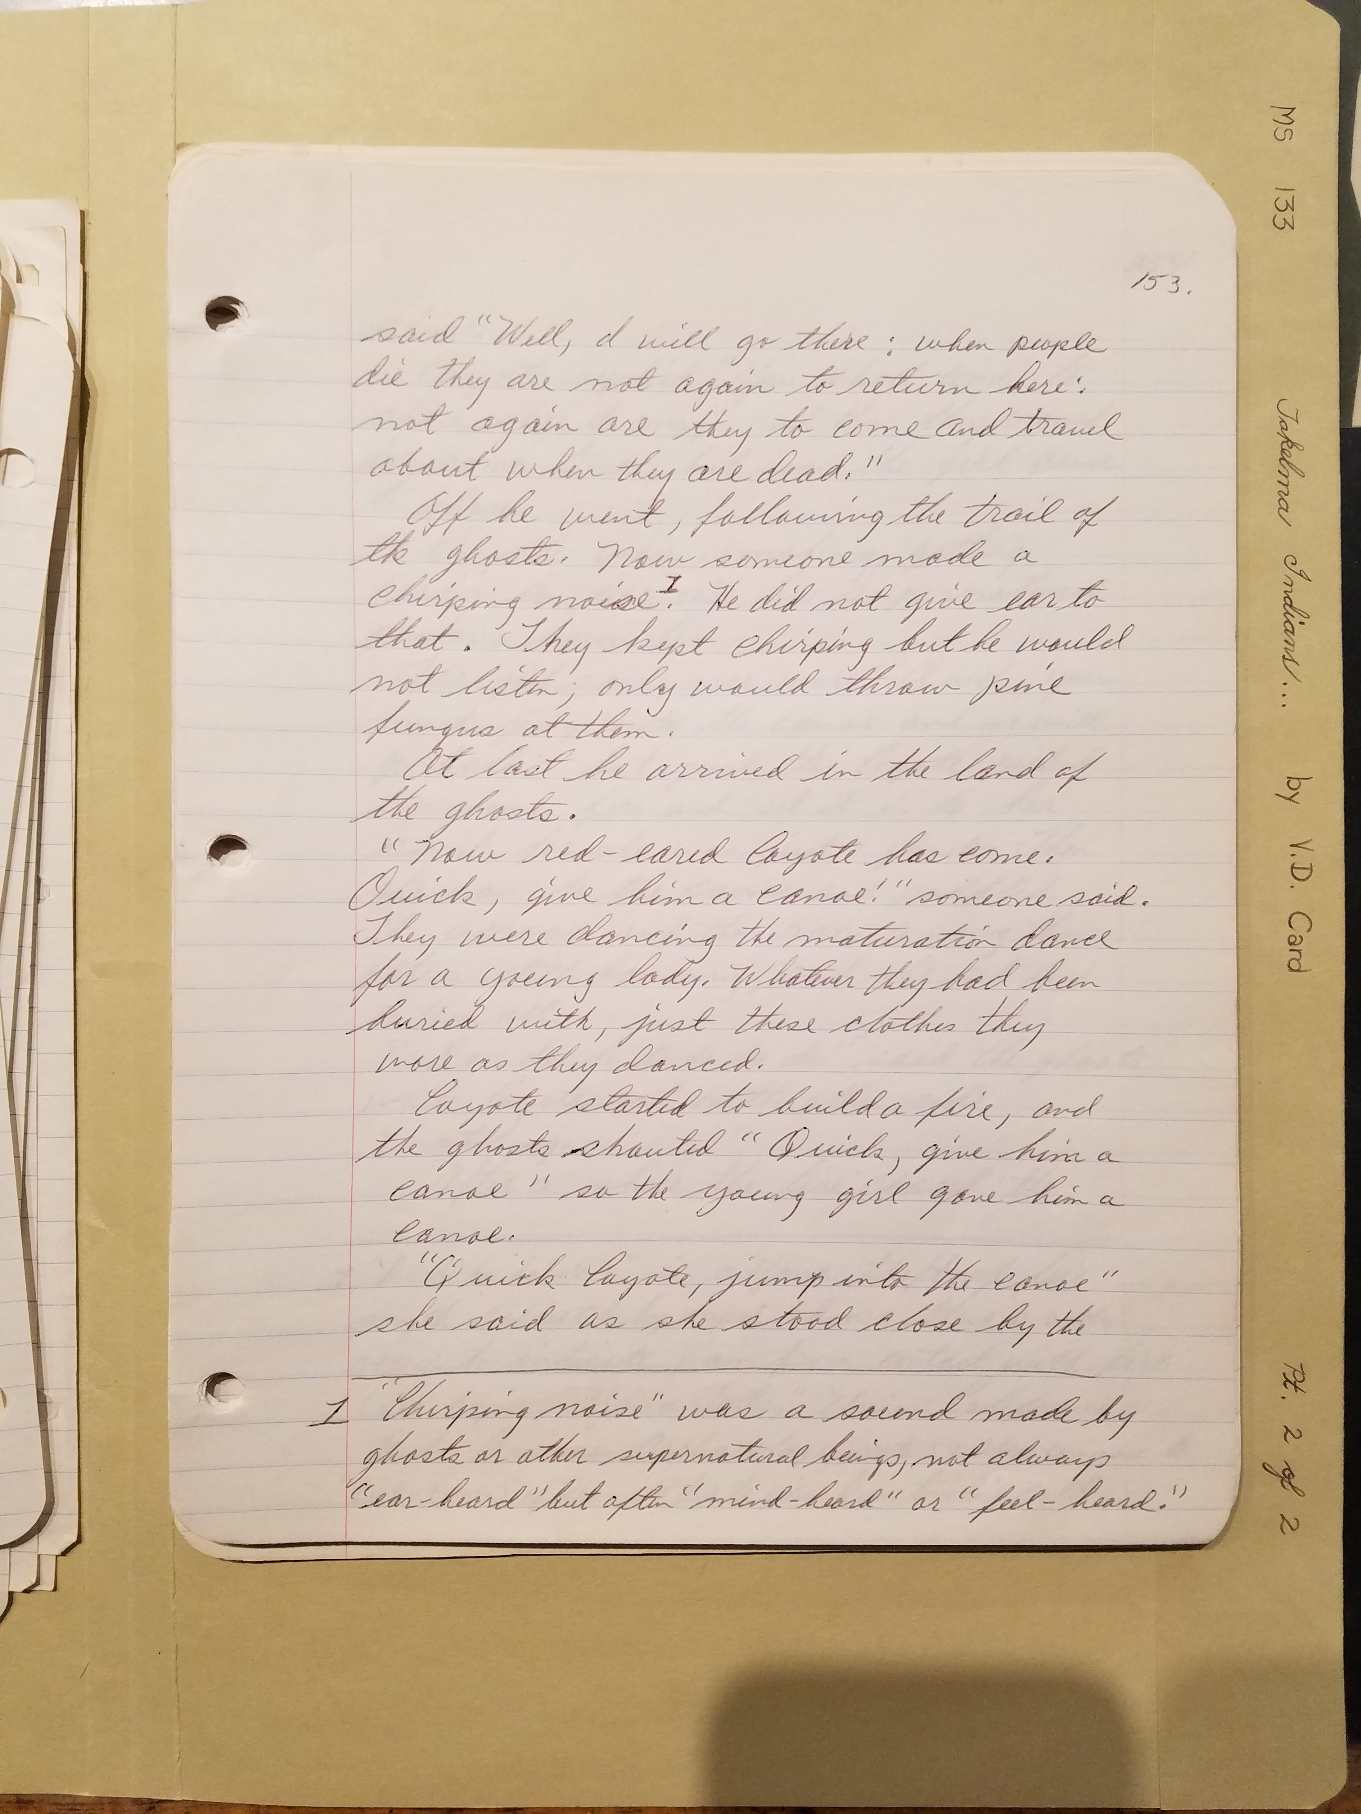 153.
said "Well, I will go there; when people
die they are not again to return here:
not again are they to come and travel
about when they are dead."
Off he went, following the trail of
the ghosts. Now someone made a
chirping noise 1. He did not give ear to
that. They kept chirping but he would
not listen; only would throw pine
fungus at them.
At last he arrived in the land of
the ghosts.
"Now red-eared Coyote has come.
Quick, give him a canoe!" someone said.
They were dancing the maturation dance
for a young lady. Whatever they had been
buried with, just these clothes they
wore as they danced.
Coyote started to build a fire, and
the ghosts shouted "Quick, give him a
canoe" so the young girl gave him a
canoe.
"Quick Coyote, jump into the canoe"
she said as she stood close by the
1 "Chirping noise" was a sound made by
ghosts or other supernatural beings, not always
"ear-heard" but often "mind-heard" or "feel-heard."
MS 133 Takelma Indians... by V.D. Card Pt. 2 of 2